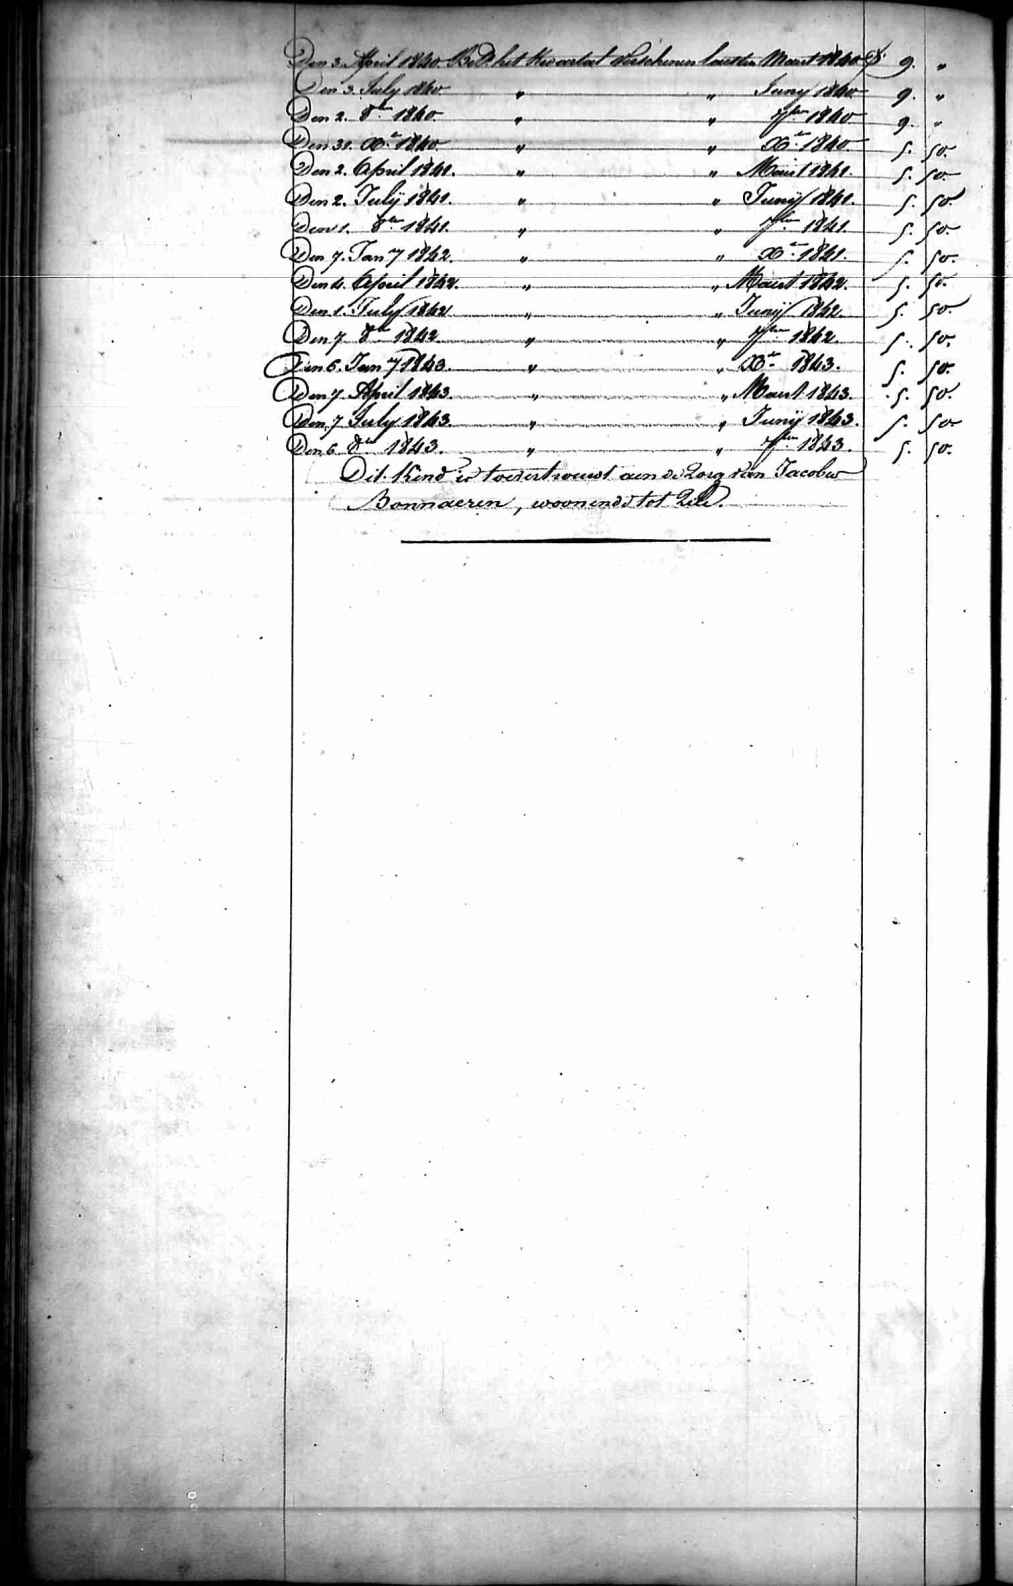 Den 3. April 1840. Bet.d het Kwartal verschenen laasten Maart 1840 f. 9. "
Den 3. July 1840 " " Juny 1840 9. "
Den 2. 8ber 1840 " " 7ber 1840 9. "
Den 31. Xber 1840 " " Xber 1840 5. 50.
Den 2. April 1841. " " Maart 1841. 5. 50.
Den 2. Julij 1841. " " Junij 1841. 5. 50
Den 1. 8ber 1841. " " 7ber 1841. 5. 50.
Den 7. Jan.y 1842. " " Xber 1841. 5. 50.
Den 4. April 1842. " " Maart 1842. 5. 50.
Den 1. July 1842 " " Junij 1842. 5. 50.
Den 7. 8ber 1842 " " 7ber 1842. 5. 50.
Den 6. Jan.y 1843. " " Xber 1843. 5. 50.
Den 7. April 1843. " " Maart 1843. 5. 50.
Den 7 July 1843. " " Junij 1843. 5. 50
Den 6. 8ber 1843. " " 7ber 1843. 5. 50.
Dit Kind is toevertrouwt aen de Zorg van Jacobus
Bonnaeren, woonende tot Zele.